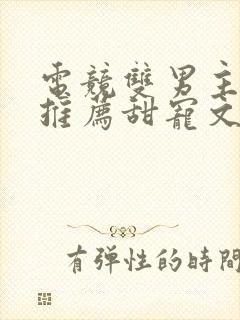 電競雙男主
推薦甜寵文
有弹性的時間